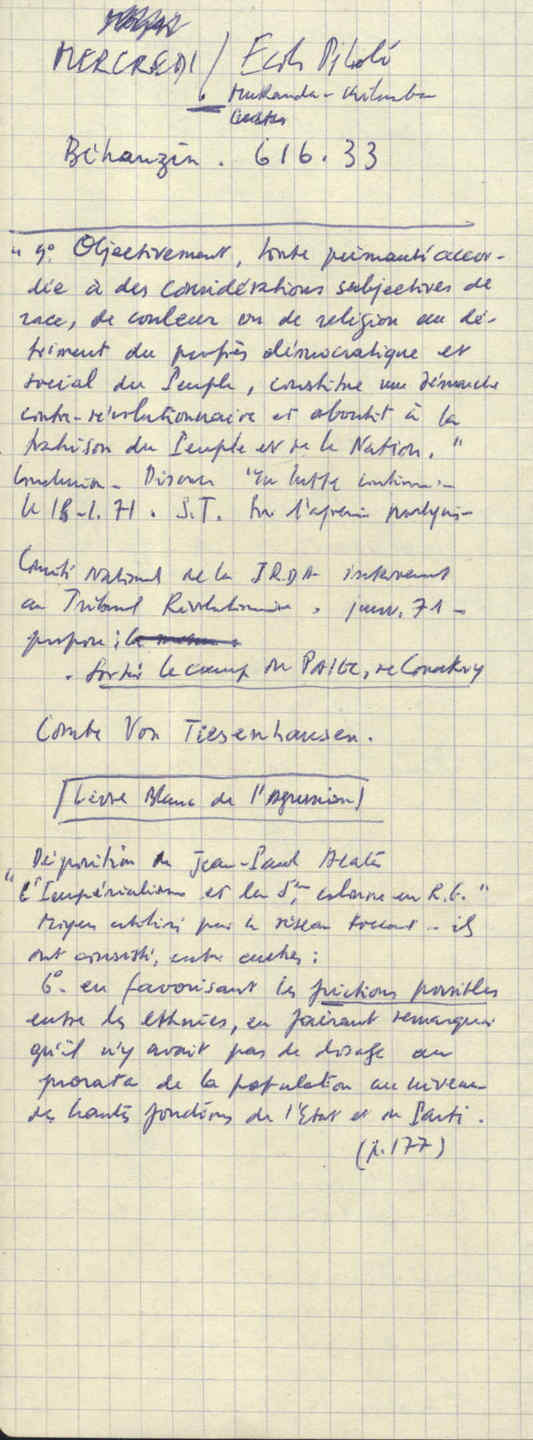 MERCREDI / Ecole Pilote
Mukanda - Kilumba
Béhanzin . 616.33
" 9° Objectivement, toute primauté accor-
dée à des considérations subjectives de
race, de couleur ou de religion au dé-
triment du progrès démocratique et
social du Peuple, constitue une démarche
contre-révolutionnaire et aboutit à la
trahison du Peuple et de la Nation. "
Conclusion - Discours "La lutte continue -
le 18-1.71 . S.T. Sur l'agression portugai-
Comité National de la JRDA intervenant
au Tribunal Révolutionnaire . janv. 71 -
propose :
. Sortir le camp du PAIGC, de Conakry
Comte Von Tiesenhausen.
[Livre Blanc de l'Agression]
Déposition de Jean-Paul Alata
" L'Impérialisme et la 5ème colonne en R.G. "
Moyens utilisés par le réseau Foccart - ils
ont consisté, entre autres :
6°- en favorisant les frictions possibles
entre les ethnies, en faisant remarquer
qu'il n'y avait pas de dosage au
prorata de la population au niveau
des hautes fonctions de l'Etat et du Parti .
(p.177)